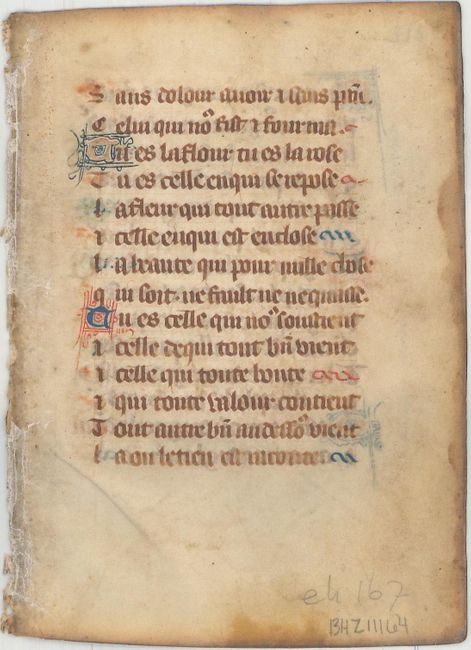 Sans dolour auoir ⁊ sans ptiʒ.
Celui qui noꝰ fist ⁊ fourma.
Tu es la flour tu es la rose
Tu es celle en qui se repose
La fleur qui tout autre passe
⁊ celle en qui est enclose
La biaute qui pour nulle chose
Qui soit. ne fault ne ne quasse.
Tu es celle qui noꝰ soustient
⁊ celle de qui tout bñ vient
⁊ celle qui toute bonte
⁊ qui toute valour contient
Tout autre bñ au dessoꝰ vient
La ou le tien est
eh 167
BHZ111164